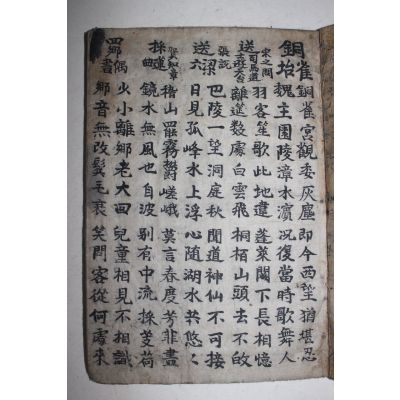 銅雀 銅雀宮觀委灰塵 即今西望猶堪忍
抬 魏主園陵漳水濱 況復當時歌舞人
宋之問 羽客笙歌此地違 蓬萊闕下長相憶
送司馬道士遊天台 離筵數處白雲飛 桐栢山頭去不皈
張說 送梁 巴陵一望洞庭秋 聞道神仙不可接
六 日見孤峰水上浮 心隨湖水共悠〻
賀知章 採蓮 稽山罷霧鬱嵯峨 莫言春度芳菲盡
曲 鏡水無風也自波 別有中流採芰荷
偶 少小離鄉老大回 兒童相見不相識
鄉書 鄉音無改鬢毛衰 笑問客從何處來